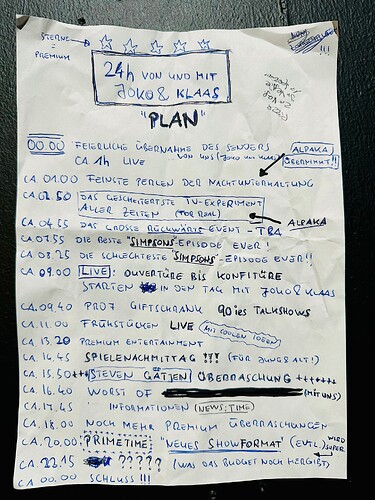 STERNE = PREMIUM
24h VON UND MIT
JOKO & KLAAS
"PLAN"
!!!
00.00 FEIERLICHE ÜBERNAHME DES SENDERS
CA 1h LIVE VON UNS (JOKO UND KLAAS)
ALPAKA
ÜBERNIMMT!!
CA. 01.00 FEINSTE PERLEN DER NACHTUNTERHALTUNG
CA. 02.50 DAS GESCHEITERTSTE TV-EXPERIMENT
ALLER ZEITEN (FOR REAL)
ALPAKA
CA. 04.55 DAS GROSSE RÜCKWÄRTS EVENT - TRA
CA. 07.55 DIE BESTE "SIMPSONS"-EPISODE EVER!
CA 08.25 DIE SCHLECHTESTE "SIMPSONS"-EPISODE EVER!!
CA 09.00 LIVE: OUVERTÜRE BIS KONFITÜRE
STARTEN IN DEN TAG MIT JOKO & KLAAS
CA. 09.40 PRO7 GIFTSCHRANK 90ies TALKSHOWS
CA. 11.00 FRÜHSTÜCKEN LIVE (MIT COOLEN IDEEN)
CA. 13.20 PREMIUM ENTERTAINMENT
CA. 14.45 SPIELENACHMITTAG ??? (FÜR JUNG & ALT!)
CA. 15.50 +++ STEVEN GÄTJEN ÜBERRASCHUNG +++++++
CA. 16.40 WORST OF (MIT UNS)
CA. 17.45 INFORMATIONEN (NEWS:TIME)
CA. 18.00 NOCH MEHR PREMIUM ÜBERRASCHUNGEN
CA. 20.00 PRIMETIME "NEUES SHOWFORMAT" (EVTL.) WIRD SUPER
CA. 22.15 ????? (WAS DAS BUDGET NOCH HERGIBT)
CA 00.00 SCHLUSS!!!